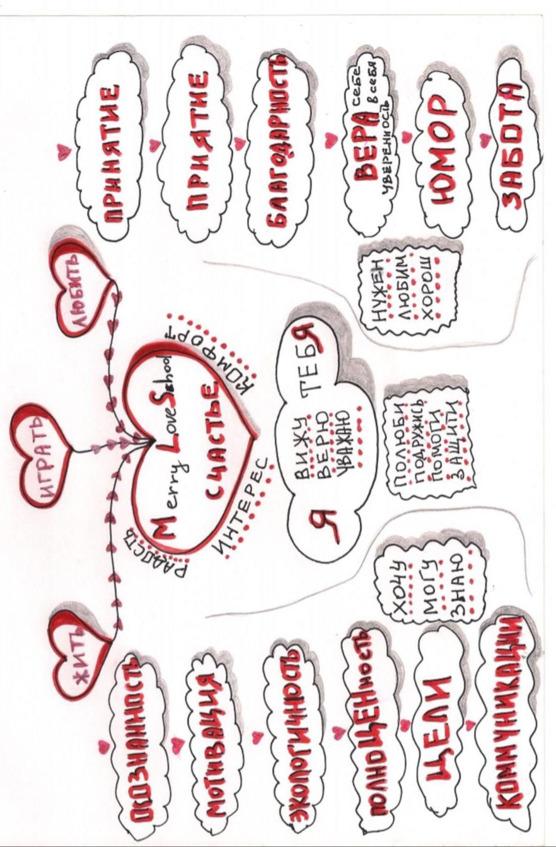 ЖИТЬ
ИГРАТЬ
ЛЮБИТЬ
ОСОЗНАННОСТЬ
МОТИВАЦИЯ
ЭКОЛОГИЧНОСТЬ
ПОЛНОЦЕННОСТЬ
ЦЕЛИ
КОММУНИКАЦИИ
РАДОСТЬ
Merry Love School
СЧАСТЬЕ
КОМФОРТ
ИНТЕРЕС
Я
ВИЖУ
ВЕРЮ
УВАЖАЮ
ТЕБЯ
ХОЧУ
МОГУ
ЗНАЮ
ПОЛЮБИ
ПОДРУЖИСЬ
ПОМОГИ
ЗАЩИТИ
НУЖЕН
ЛЮБИМ
ХОРОШ
ПРИНЯТИЕ
ПРИЯТИЕ
БЛАГОДАРНОСТЬ
ВЕРА себе
УВЕРЕННОСТЬ в себя
ЮМОР
ЗАБОТА